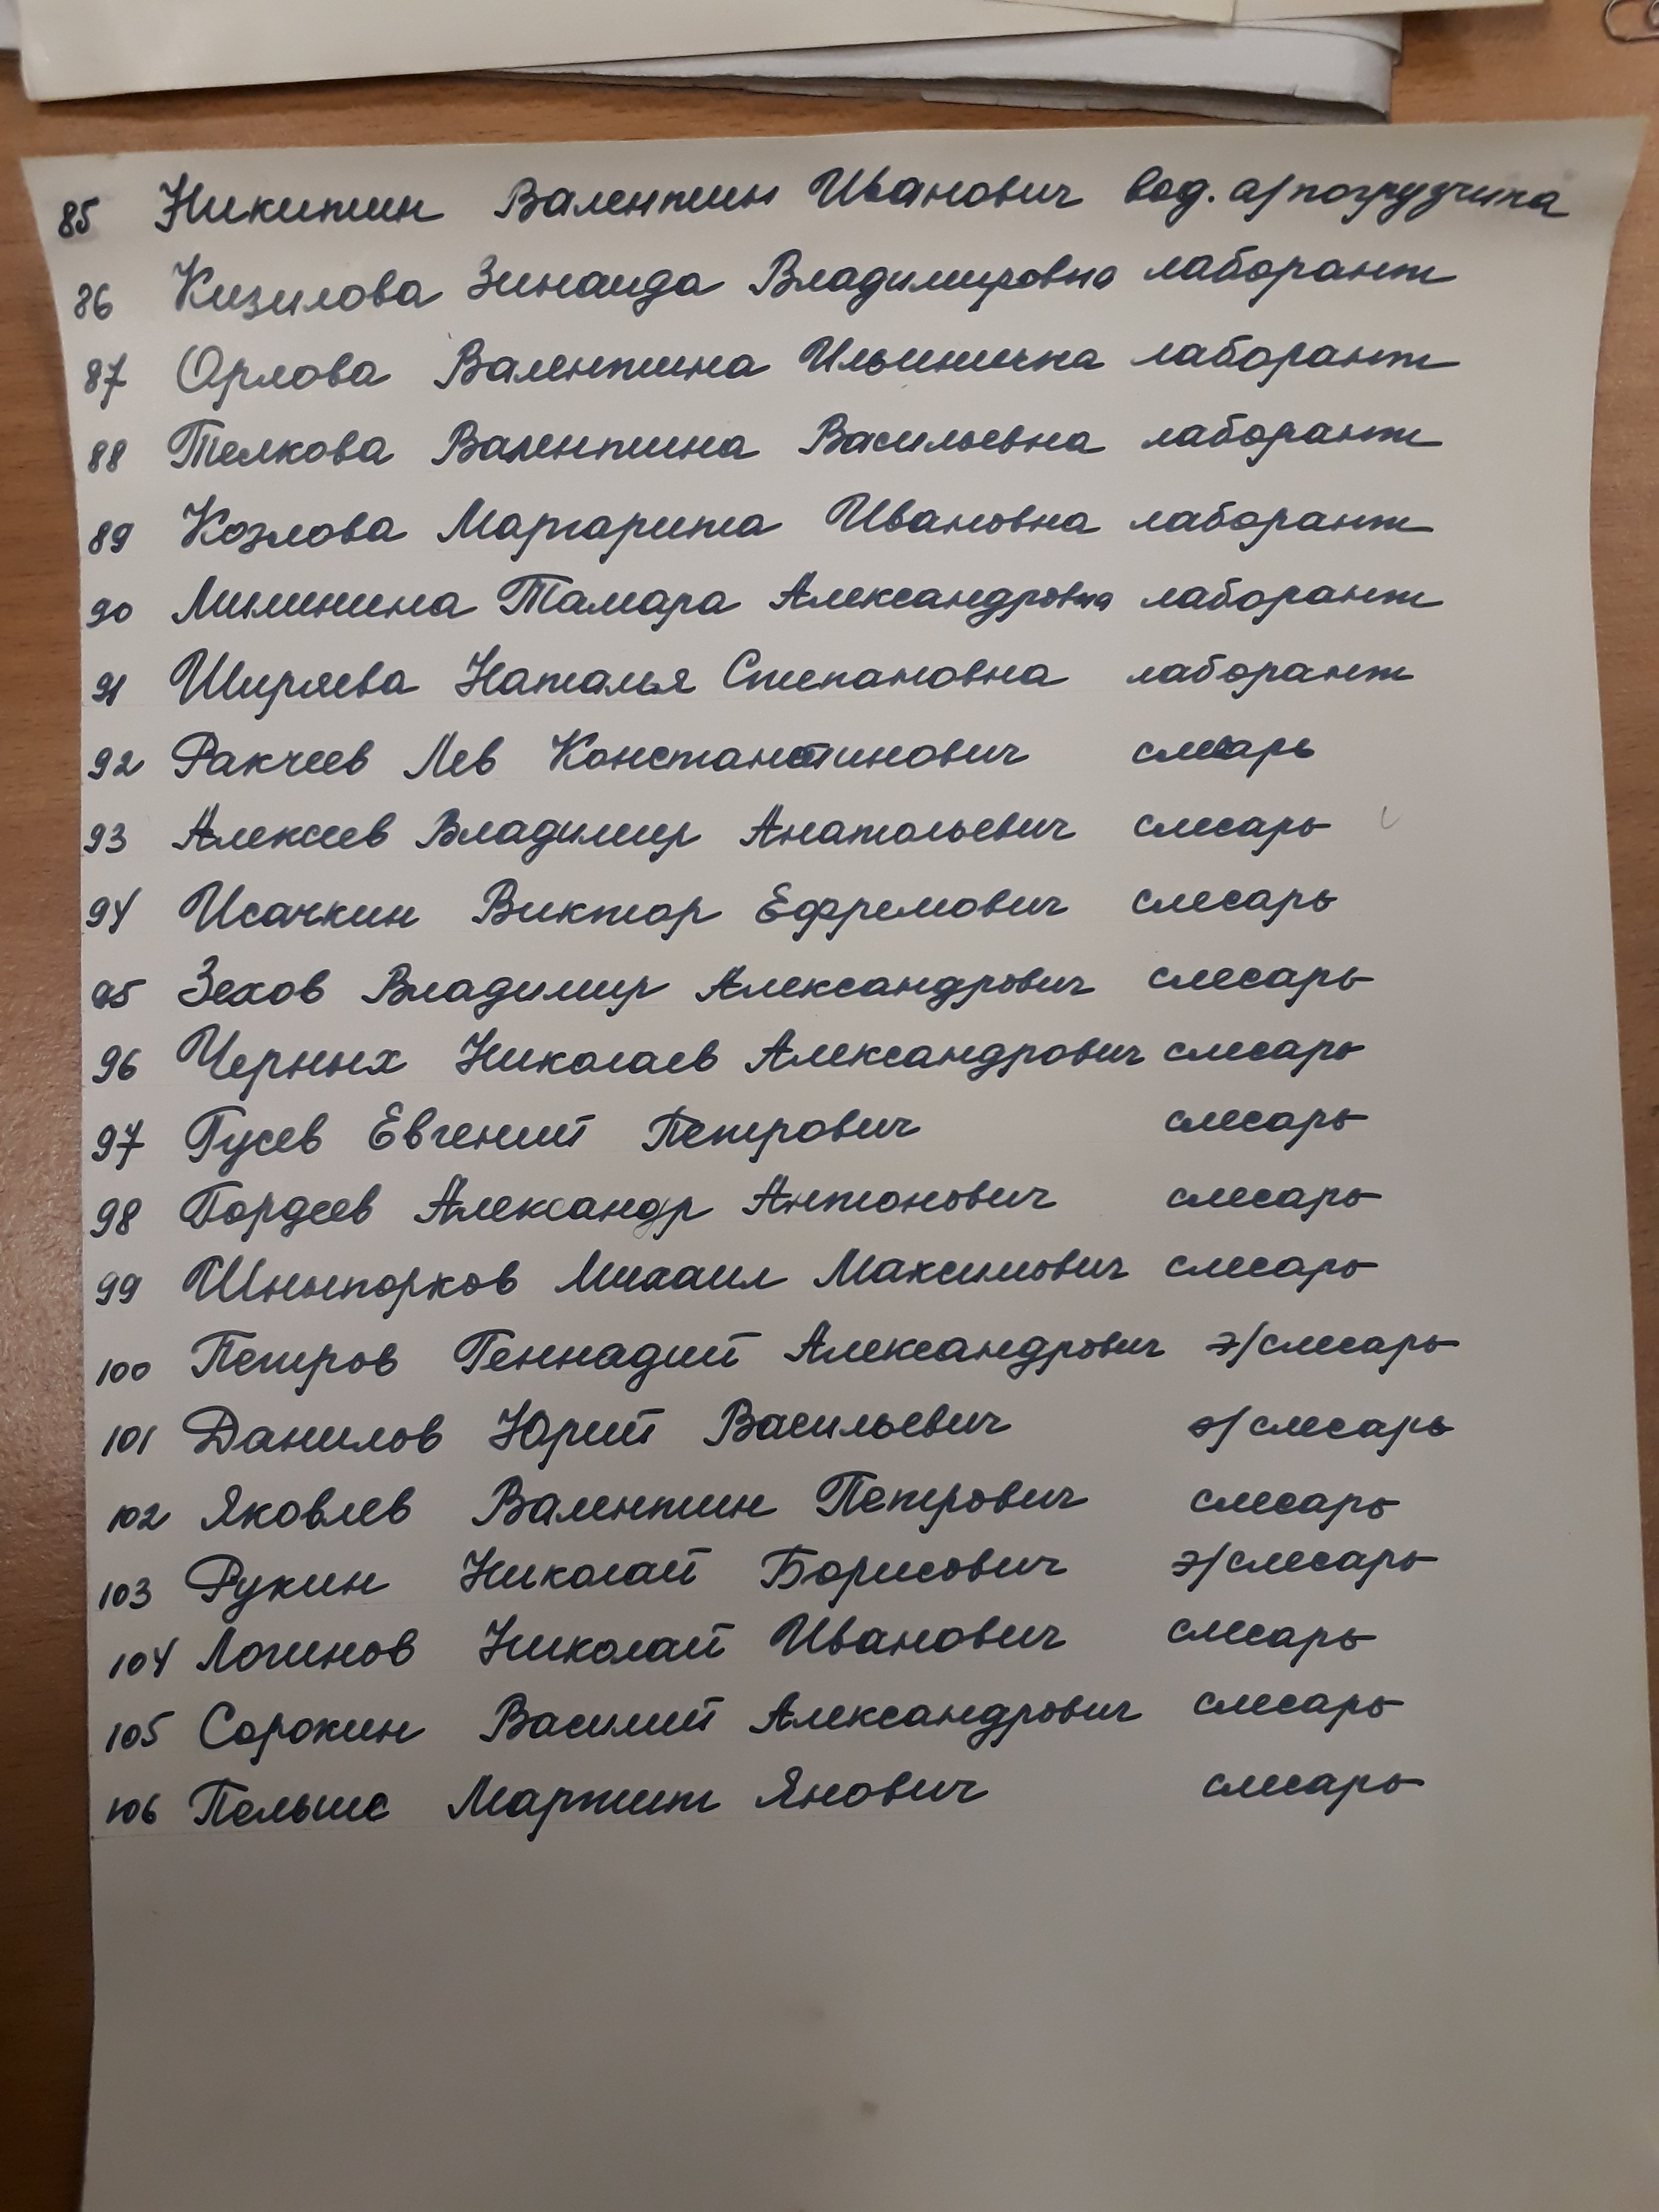 85 Никитин Валентин Иванович вод. а/погрузчика
86 Кизилова Зинаида Владимировна лаборант
87 Орлова Валентина Ильинична лаборант
88 Телкова Валентина Васильевна лаборант
89 Козлова Маргарита Ивановна лаборант
90 Линичина Тамара Александровна лаборант
91 Ширяева Наталья Степановна лаборант
92 Ракчеев Лев Константинович слесарь
93 Алексеев Владимир Анатольевич слесарь
94 Исачкин Виктор Ефремович слесарь
95 Зехов Владимир Александрович слесарь
96 Черных Николаев Александрович слесарь
97 Гусев Евгений Петрович слесарь
98 Гордеев Александр Антонович слесарь
99 Шныпорков Михаил Максимович слесарь
100 Петров Геннадий Александрович э/слесарь
101 Данилов Юрий Васильевич э/слесарь
102 Яковлев Валентин Петрович слесарь
103 Рукин Николай Борисович э/слесарь
104 Логинов Николай Иванович слесарь
105 Сорокин Василий Александрович слесарь
106 Пельше Мартин Янович слесарь